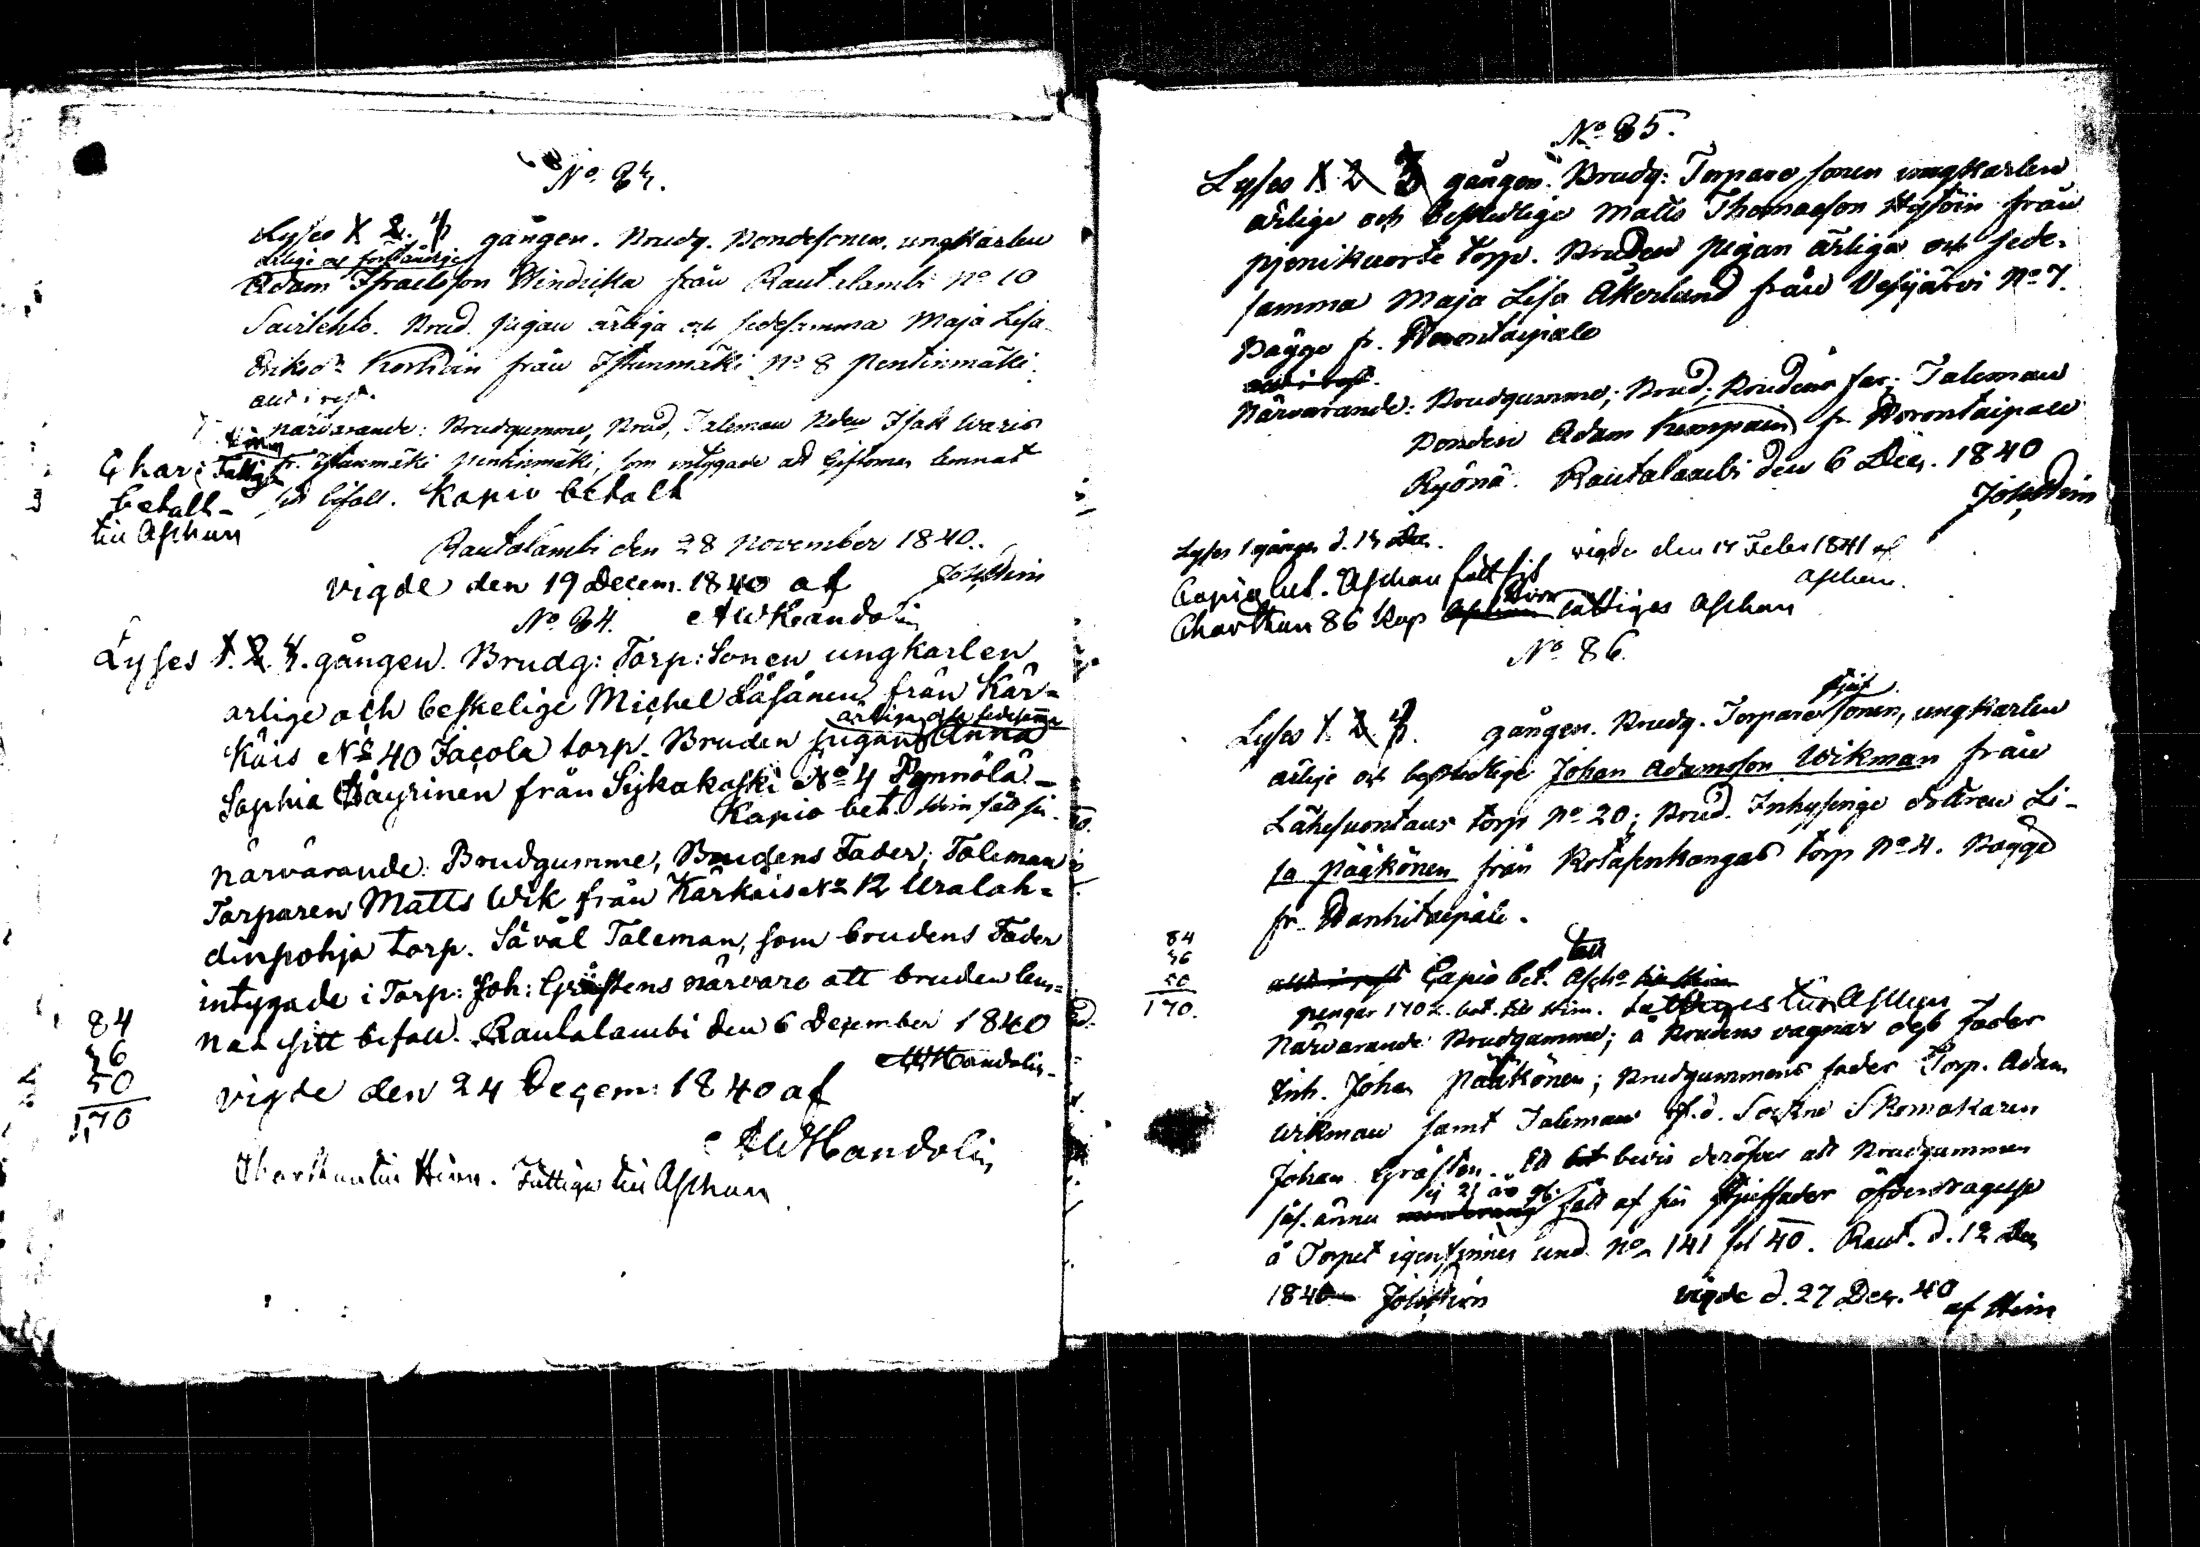 No 84.
Lyses 1 2. 3 gången. Brudg. Bondesonen, ungkarlen
ärlige och förståndige
Adam Israelsson Hindrika från Rautalambi No 10
Brud. pigan ärliga och sedesamma Maja Lisa
Eriksdr från Istunmäki No 8 Pentinmäki.
Närvarande: Brudgumme, Brud, Taleman Bden Isak Waris
fr. Istunmäki Pentinmäki, som intygade att Giftoman lemnat
sitt bifall. Kapio betalt
Char:
betalt
till Aschan
Rautalambi den 28 November 1840.
vigde den 19 Decem. 1840 af
AWHandolin
No 84.
Lyses 1. 2. 3. gången. Brudg: Torp: Sonen ungkarlen
ärlige och beskelige Michel Läsänen från Kär=
ärliga och sedesamma
käis No 40 Jacola torp. Bruden pigan Anna
Sophia Häyrinen från Sijkakoski No 4 Pynnölä
Kapio bet. Hein fått sin.
närvarande: Brudgumme, Brudens Fader; Taleman
Torparen Matts Wik från Kärkäis No 12 Uralah=
dinpohja torp. Såväl Taleman, som brudens Fader
intygade i Torp: Joh: Gråstens närvaro att bruden lem=
nat sitt bifall. Rautalambi den 6 December 1840
AWHandolin
vigde den 24 Decem: 1840 af
AWHandolin
84
36
50
170
Charthan till Hein. Fattiges till Aschan
No 85.
Lyses 1 2 3 gången. Brudg: Torpare sonen ungkarlen
ärlige och beskedlige Matts Thomasson Hytöin från
Pjenikuorte torp. Bruden pigan ärliga och sede-
samma Maja Lisa Åkerlund från Vesijärvi No 7.
Bägge fr.
Närvarande: Brudgumme; Brud; Brudens far; Taleman
Bonden Adam Kemppain fr.
Ryönä. Rautalambi den 6 Dec. 1840
Joh Hein
Lyses 1 gången d. 13 Dec.
vigde den 14 Febr 1841 af
Aschan.
Capio bet. Aschan fått sit
Charthan 86 kop Hein fattiges Aschan
No 86.
Lyses 1. 2. 3. gången. Brudg. Torpare sonen, ungkarlen
stjuf
ärlige och beskedlige Johan Adamsson Wikman från
Lähesuontaus torp No 20; Brud. Inhysinge dottren Li-
sa Pääkönen från Kotasenkangas torp No 4. Bägge
fr. Hankitaipale.
84
36
50
170.
Capio bet. till Asch.
pengar 170 k. bet. till Hein. Fattiges till Aschan
Närvarande: Brudgumme; å Brudens vägnar dess fader
Inh. Johan Pääkönen; Brudgummens fader Torp. Adam
Wikman samt Taleman f.d. Sockne Skomakaren
Johan Gråsten. Ett bevis deröfver att Brudgummen
ej 21 år
fått af sin Stjuffader
å Torpet igenfinnes und. No 141 för 40. Raut. d. 12 Dec
1840 Joh Hein
vigde d. 27 Dec. 40
af Hein